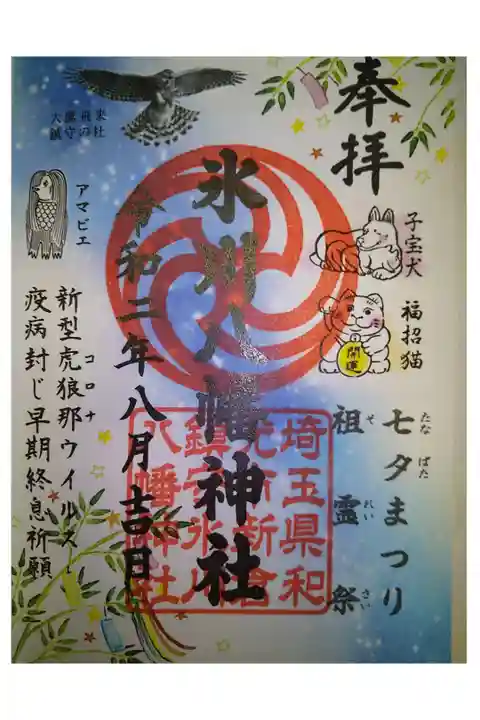 奉拝
大鷹飛来
鎮守の社
アマビエ
子宝犬
福招猫
開運
氷川八幡神社
令和二年八月吉日
七夕まつり
たな ばた
祖霊祭
それいさい
新型虎狼那ウイルス
コロナ
疫病封じ早期終息祈願
埼玉県和
光市新倉
鎮守氷川
八幡神社